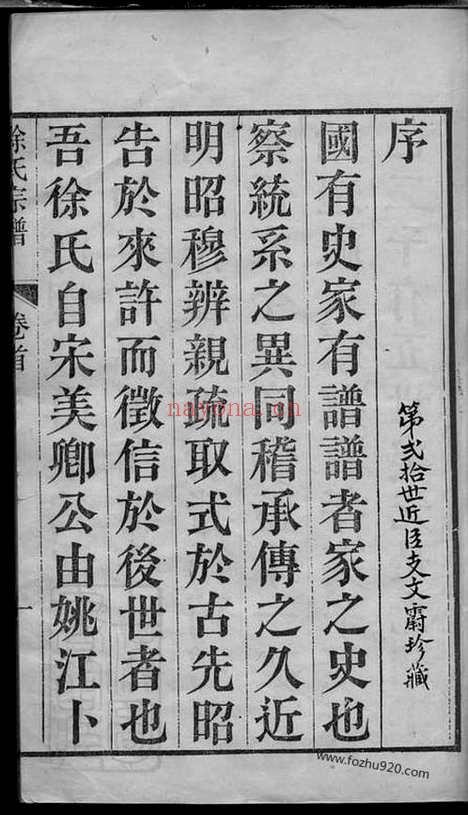 序
第弍拾世近臣支文霨珍藏
國有史家有譜譜者家之史也
察統系之異同稽承傳之久近
明昭穆辨親疏取式於古先昭
告於來許而徵信於後世者也
吾徐氏自宋美卿公由姚江卜
徐氏宗譜 卷首 一
nayona.cn
www.fozhu920.com